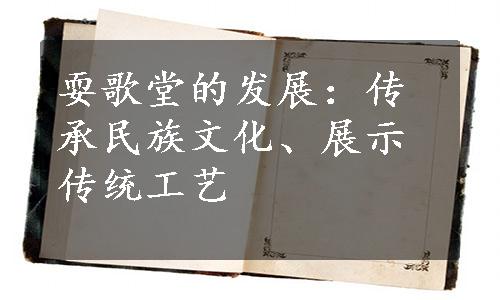 耍歌堂的发展：传
承民族文化、展示
传统工艺